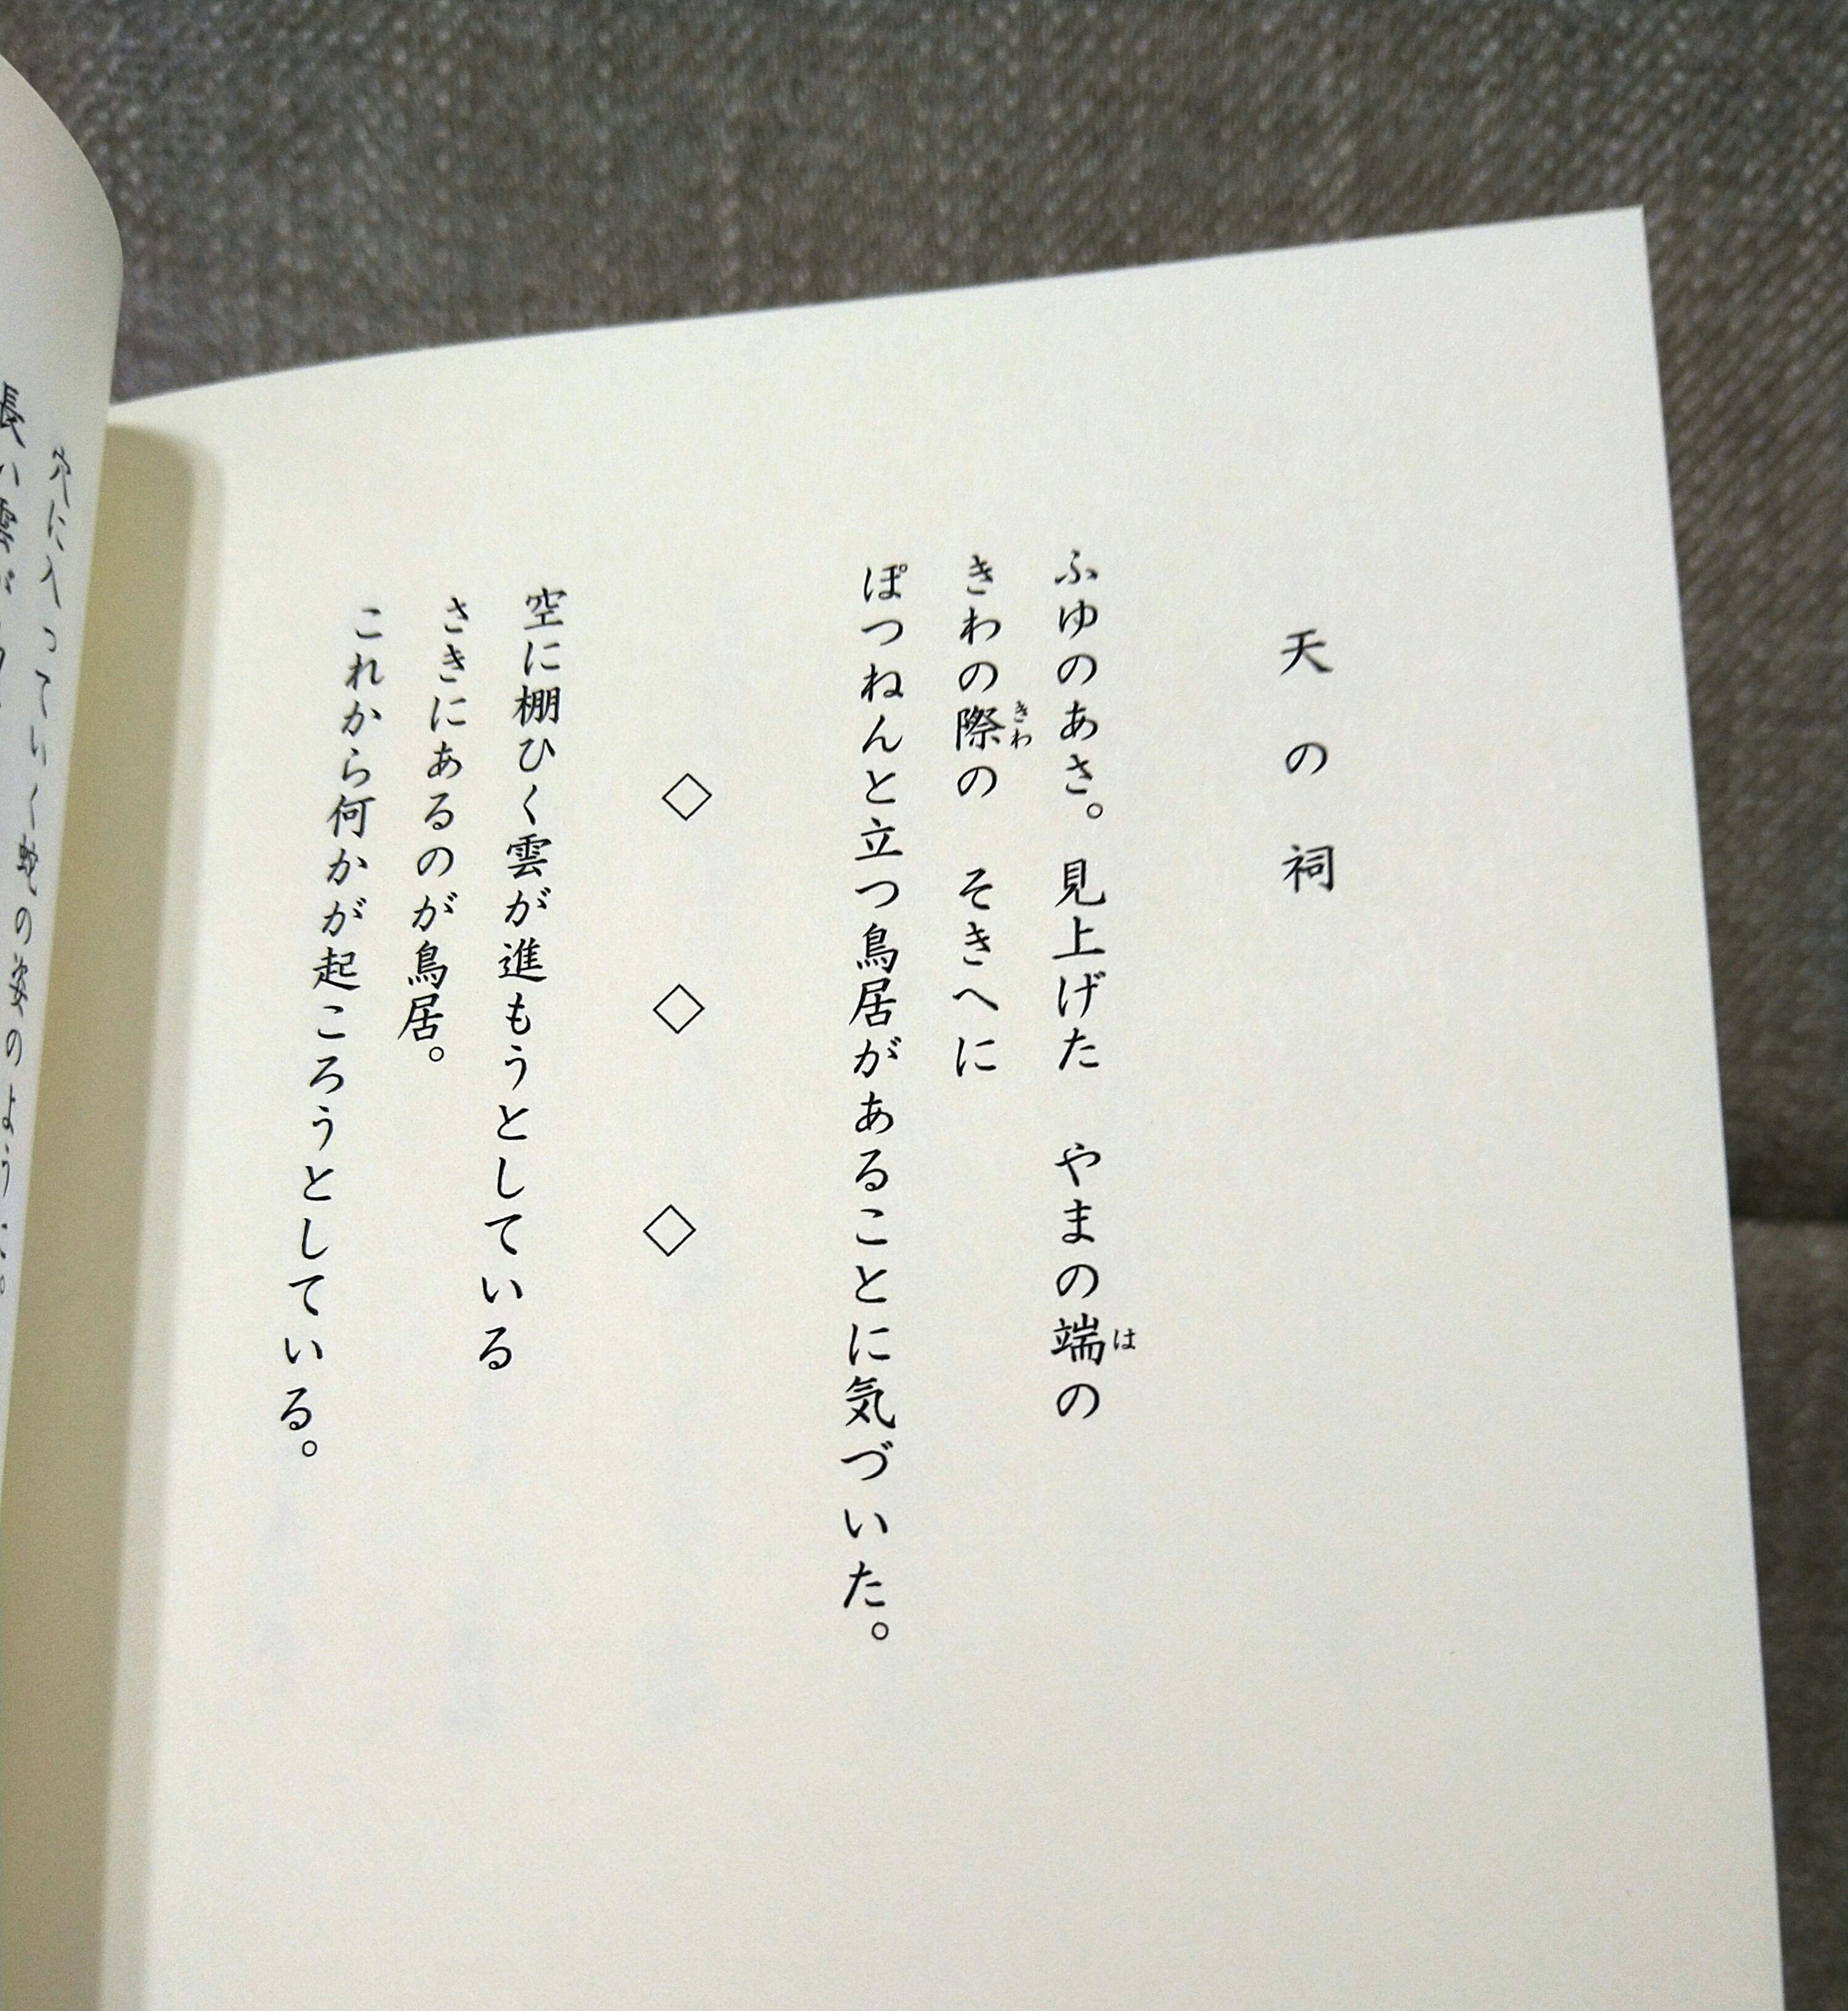 天の祠
ふゆのあさ。見上げた　やまの端の
は
きわの際の　そきへに
きわ
ぽつねんと立つ鳥居があることに気づいた。
◇　◇　◇
空に棚ひく雲が進もうとしている
さきにあるのが鳥居。
これから何かが起ころうとしている。
穴に入っていく蛇の姿のように。
長い雲が